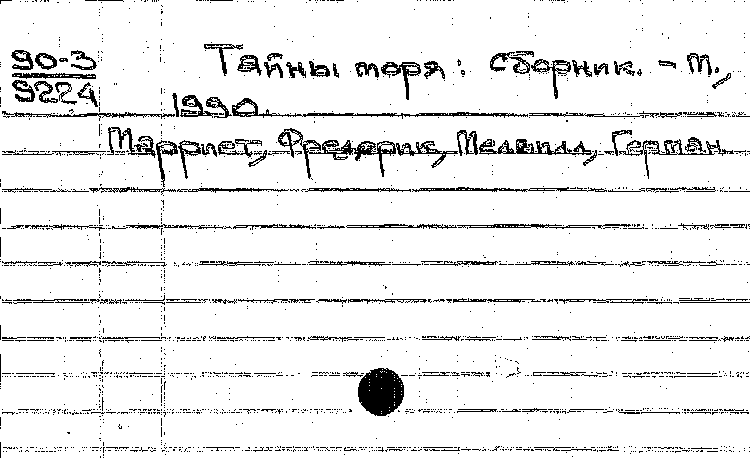 90-3
9224
Тайны моря: сборник. - М.,
1990.
Марриет, Фредерик, Мелвилл, Герман